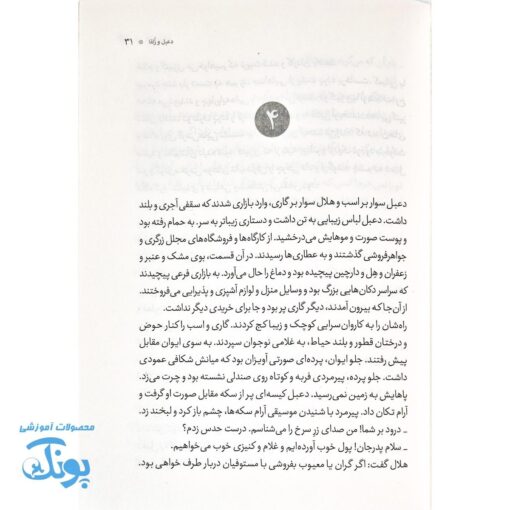 دعبل و زلفا ● ۳۱
۴
دعبل سوار بر اسب و هلال سوار بر گاری، وارد بازاری شدند که سقفی آجری و بلند
داشت. دعبل لباس زیبایی به تن داشت و دستاری زیباتر به سر. به حمام رفته بود
و پوست صورت و موهایش می‌درخشید. از کارگاه‌ها و فروشگاه‌های مجلل زرگری و
جواهرفروشی گذشتند و به عطاری‌ها رسیدند. در آن قسمت، بوی مشک و عنبر و
زعفران و هل و دارچین پیچیده بود و دماغ را حال می‌آورد. به بازاری فرعی پیچیدند
که سراسر دکان‌هایی بزرگ بود و وسایل منزل و لوازم آشپزی و پذیرایی می‌فروختند.
از آن‌جا که بیرون آمدند، دیگر گاری پر بود و جا برای خریدی دیگر نداشت.
راه‌شان را به کاروان‌سرایی کوچک و زیبا کج کردند. گاری و اسب را کنار حوض
و درختان قطور و بلند حیاط، به غلامی نوجوان سپردند. به سوی ایوان مقابل
پیش رفتند. جلو ایوان، پرده‌ای صورتی آویزان بود که میانش شکافی عمودی
داشت. جلو پرده، پیرمردی فربه و کوتاه روی صندلی نشسته بود و چرت می‌زد.
پاهایش به زمین نمی‌رسید. دعبل کیسه‌ای پر از سکه مقابل صورت او گرفت و
آرام تکان داد. پیرمرد با شنیدن موسیقی آرام سکه‌ها، چشم باز کرد و لبخند زد.
ـ درود بر شما! من صدای زر سرخ را می‌شناسم. درست حدس زدم؟
ـ سلام پدرجان! پول خوب آورده‌ایم و غلام و کنیزی خوب می‌خواهیم.
هلال گفت: اگر گران یا معیوب بفروشی با مستوفیان دربار طرف خواهی بود.
محصولات آموزشی
پونک